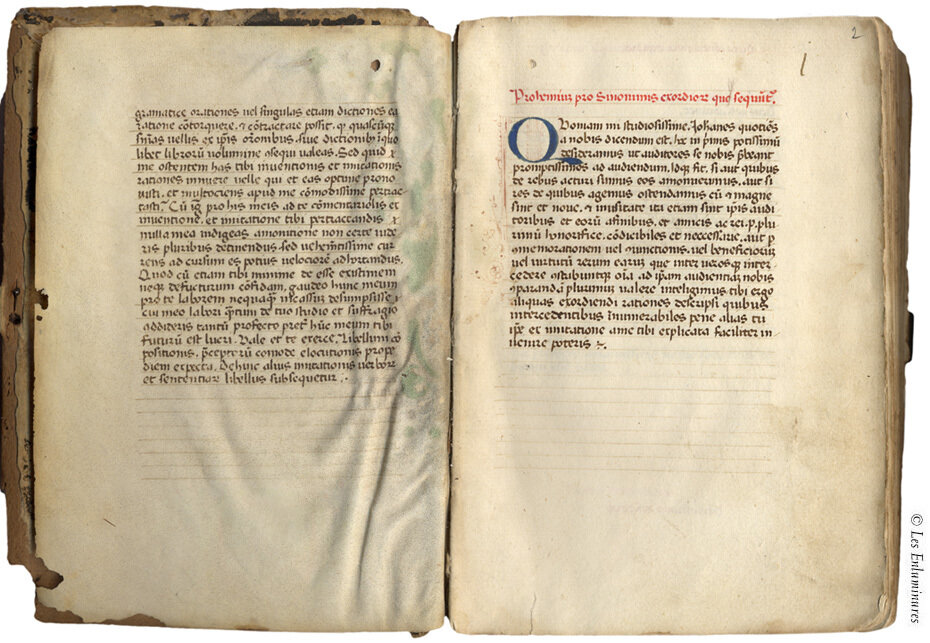 gramatice orationes vel singulas etiam dictiones ea
ratione cōtorquere, & cōtractare possit, qͥ quascūqꝫ
velis ex ip̄is or̄onibus, siue dictionibꝫ ī quo
libet librorū uolumine ꝯsequi ualeas. Sed quid
me ostentem has tibi inuentionis et imitationis
rationes inuenire uelle qui et eas optime prono
uisti, et multociens apud me cōmodissime pertrac
tasti. Cū igͥ pro his meis ad te cōmentariolis et
inuentione, et imitatione tibi pertractandis
nulla mea indigeas amonitione non certe uide
ris pluribus detinendus sed uehemētissime cur
rens ad cursum es potius uelociorē adhortandus.
Quod cū etiam tibi minime de esse existimem
neqꝫ defuturum confidam, gaudeo hunc meum
pro te laborem nequaqͣꝫ īcassū desumpsisse,
cui meo labori qͣntum de tuo studio et suffragio
addideris tantū profecto pret hūc meum tibi
futurū est lucri. Vale et te exerce. Libellum cō
positionis, p̄ceptorū comode elocutionis prope
diem expecta. Dehinc alius imitationis uerborꝝ
et sententiarꝝ libellus subsequetur.
2
1
Prohemiuꝫ pro Sinonimis exordiorꝝ que sequūtꝰ.
Quoniam mi studiosissime Johanes quotiēs
a nobis dicendum est, hec in p̄mis potissimū
desideramus ut auditores se nobis p̄beant
promptissimos ad audiendum, Idqꝫ fit, si aut quibus
de rebus acturi simus eos amonuerimus, aut si
res de quibus agemus ostendamus cū & magne
sint et noue, & inusitate itꝫ etiam sint ip̄is audi
toribus et eorū affinibus, et amicis ac rei .p. plu
rimū honorifice, cōdicibiles et neccessarie, aut p
ꝯmemorationem uel ꝯiunctionis, uel beneficiorū
uel uirtutū rerum earuꝫ que inter uerosqꝫ inter
cedere ꝯstabuntqꝫ oīa, ad ipam audientiaꝫ nobis
ꝯparandā plurimuꝫ ualere inteligimus tibi ergo
aliquas exordiendi rationes descripsi quibus
intercedentibus īnumerabiles pene alias tu
ip̄e ex imitatione a me tibi explicata faciliter in
uenire poteris
© Les Enluminures